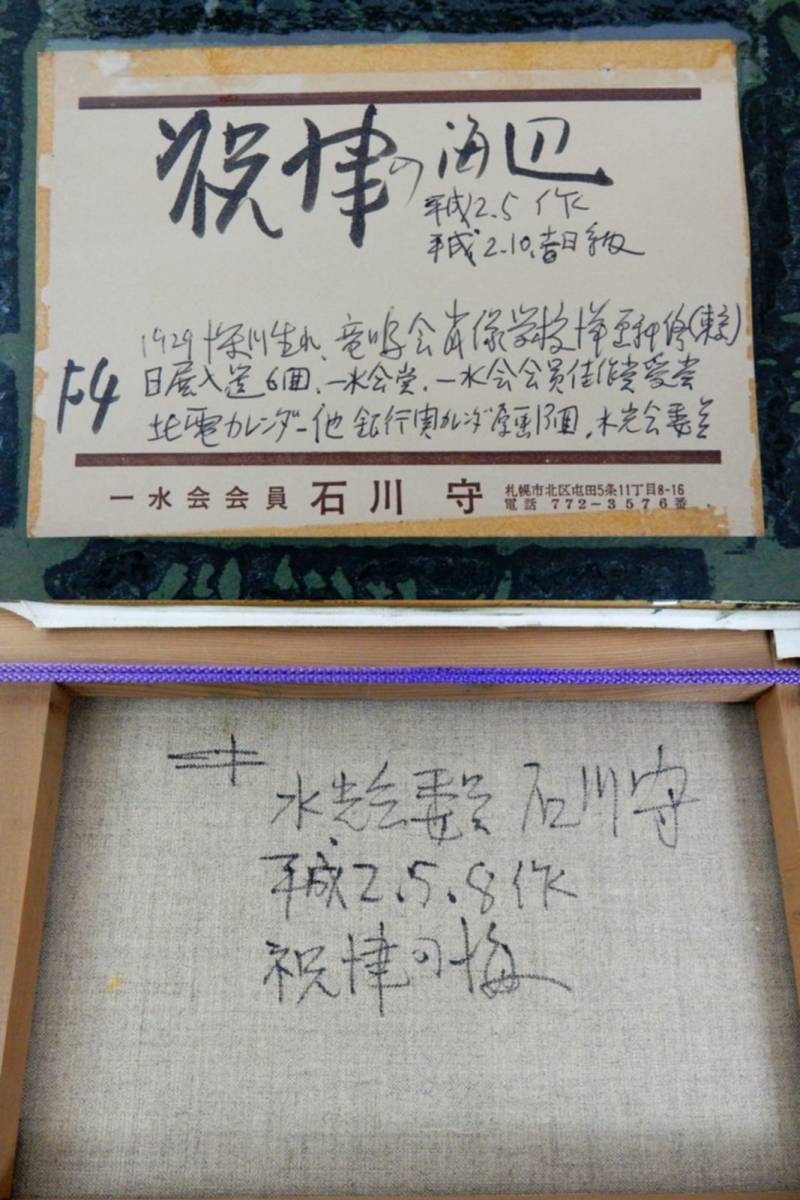 祝津の海辺
平成2.5作
平成2.10.春日
1929深川生れ、
F4
日展入選6回、一水会賞、一水会会員佳作賞受賞
北電カレンダー他銀行関カレンダ原画13回、水光会委員
一水会会員 石川 守
札幌市北区屯田5条11丁目8-16
電話 772-3576番
水光会委員 石川守
平成2.5.8作
祝津の海